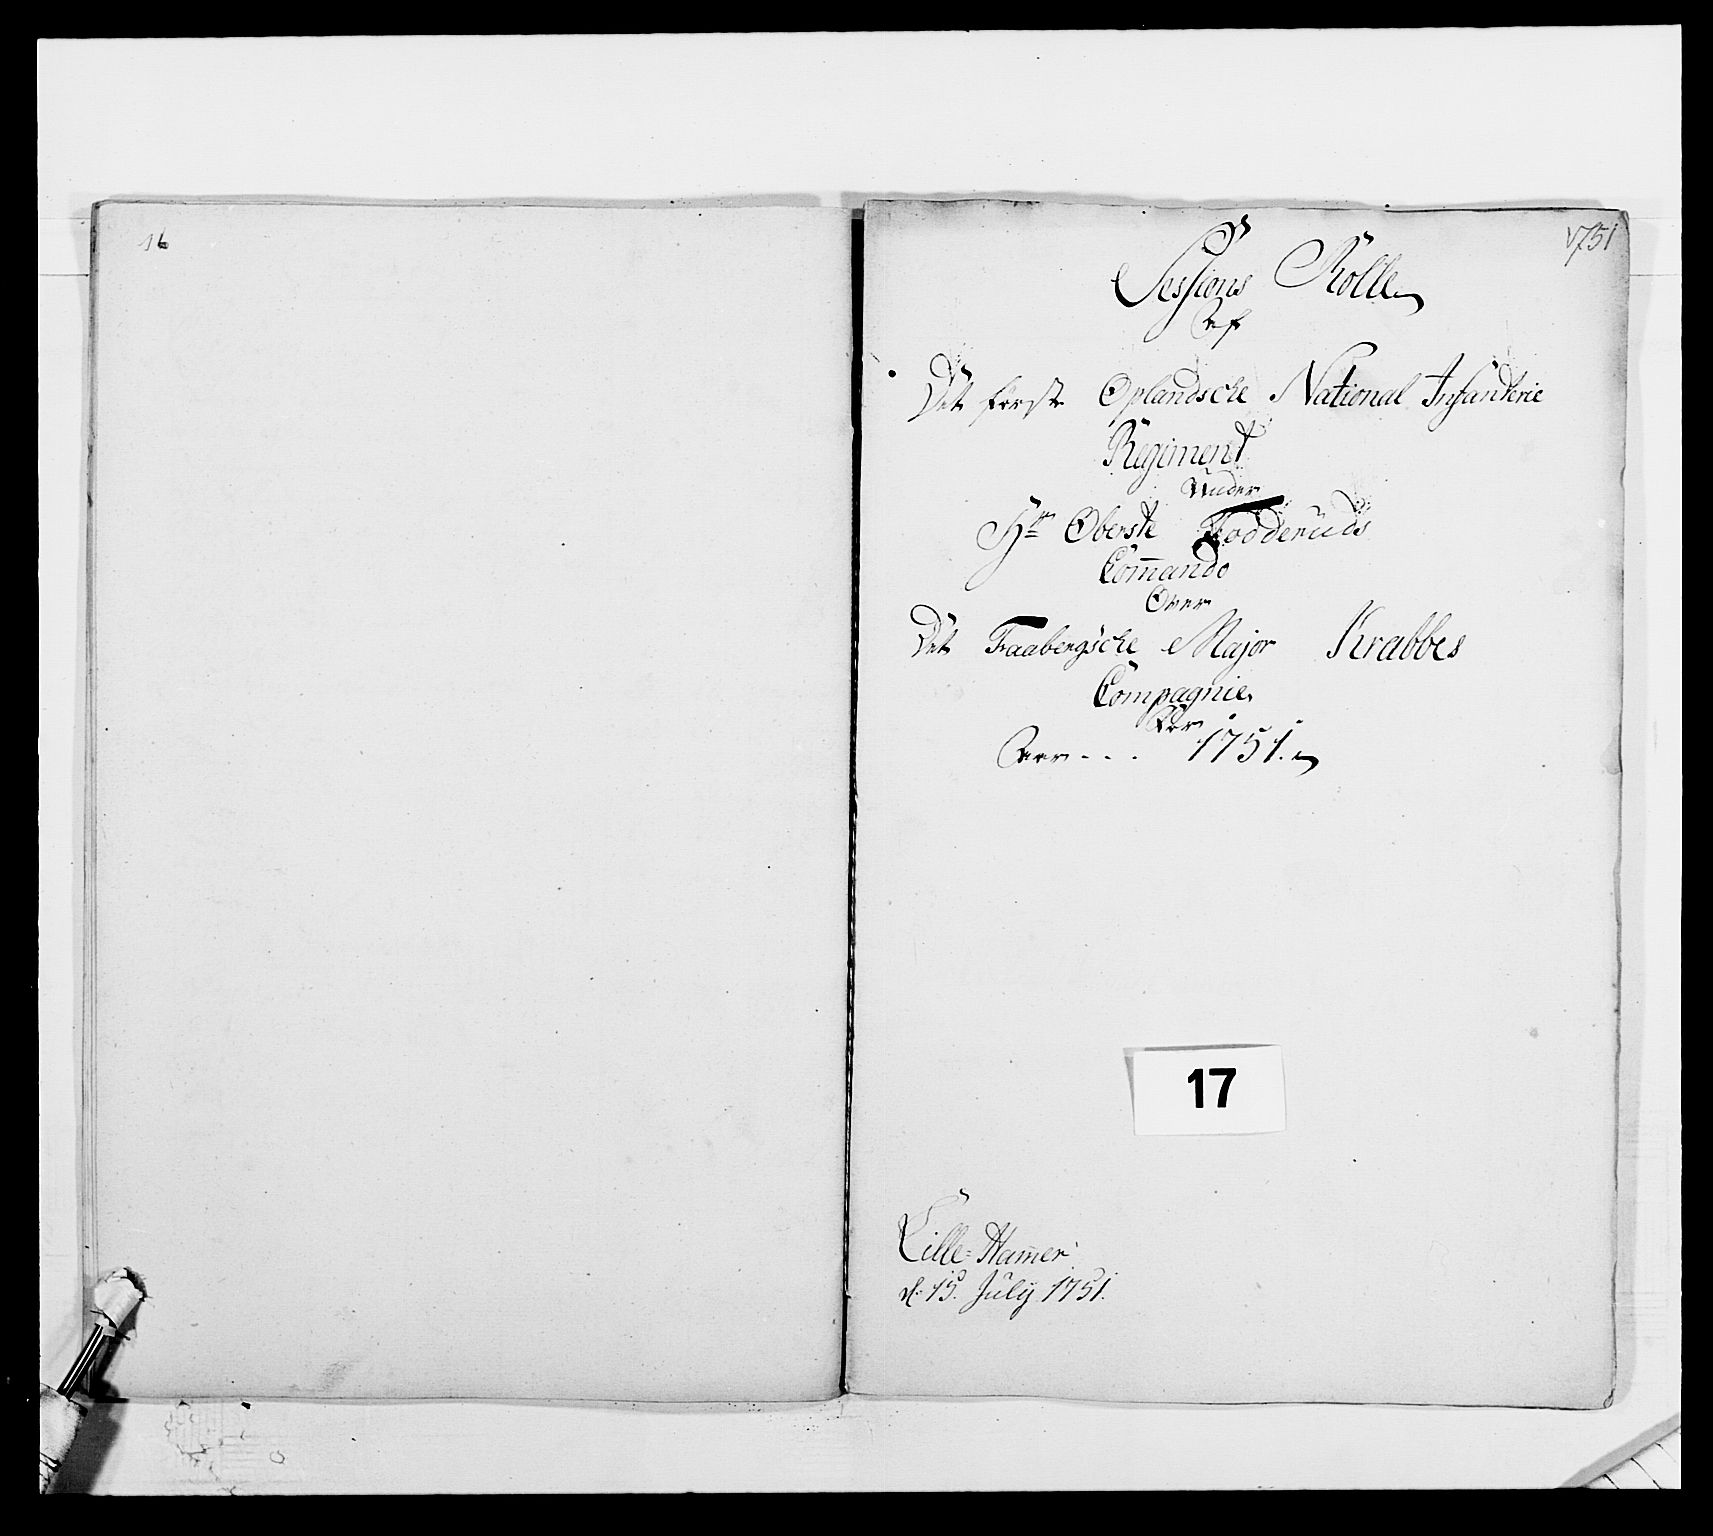 16
1751
Sessions Rolle
Af
Det første Oplandsche National Infanterie
Regiment
Under
Hr Oberste Fodderuds
Com̄ando
Over
Det Faabergsche Major Krabbes
Compagnie
For
Aar - - - 1751.
17
Lille-Ham̄er
d: 15. Julÿ 1751.